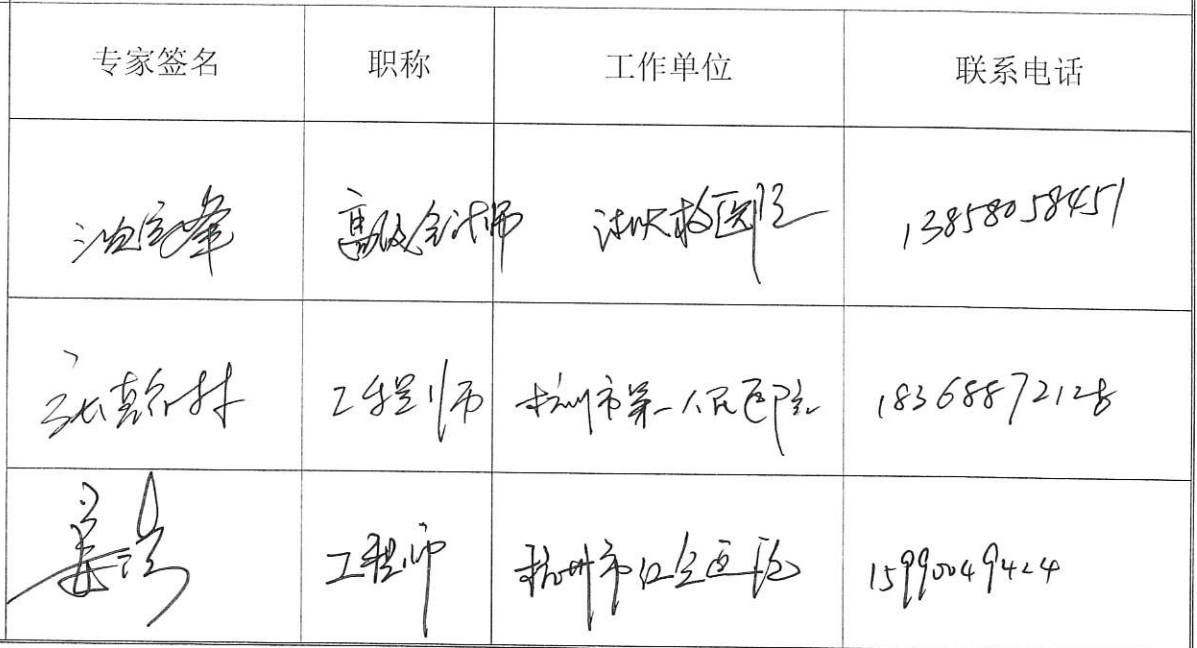 专家签名 职称 工作单位 联系电话
高级会计师 医院 13858058451
工程师 杭州市第一人民医院 18368872128
工程师 杭州市红会医院 15990049424